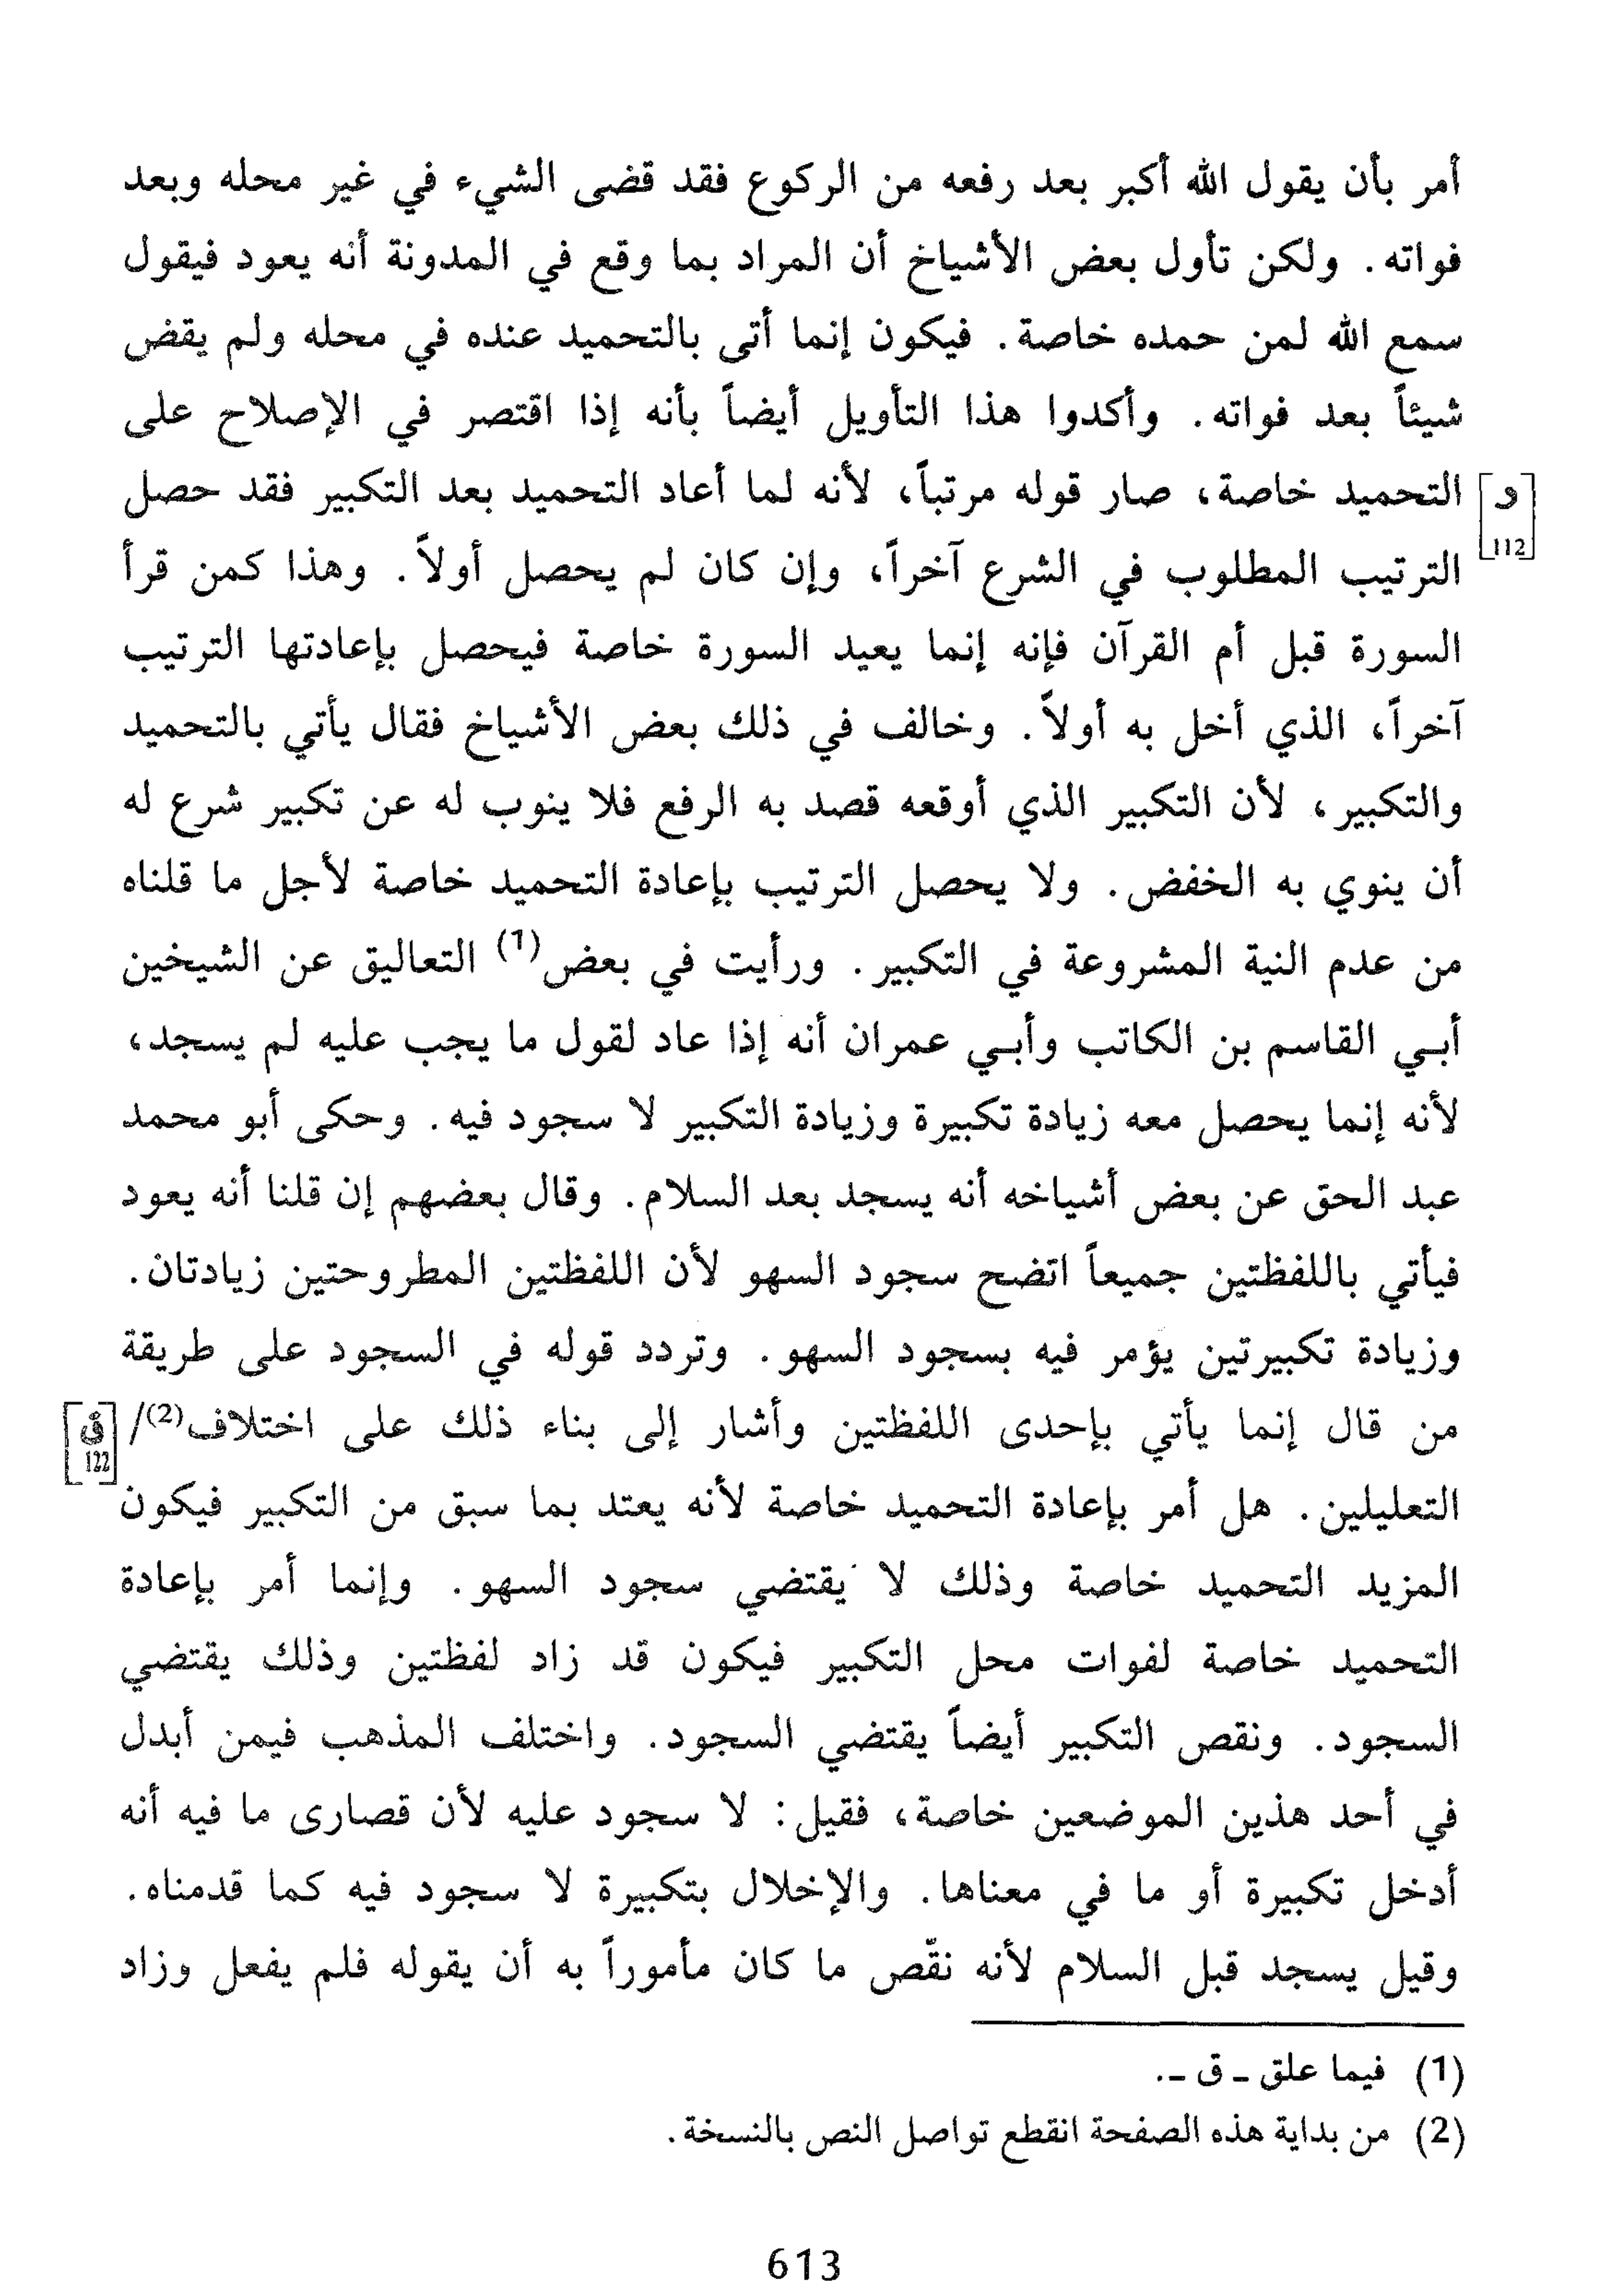 أمر بأن يقول الله أكبر بعد رفعه من الركوع فقد قضى الشيء في غير محله وبعد
فواته. ولكن تأول بعض الأشياخ أن المراد بما وقع في المدونة أنه يعود فيقول
سمع الله لمن حمده خاصة. فيكون إنما أتى بالتحميد عنده في محله ولم يقض
شيئاً بعد فواته. وأكدوا هذا التأويل أيضاً بأنه إذا اقتصر في الإصلاح على
التحميد خاصة، صار قوله مرتباً، لأنه لما أعاد التحميد بعد التكبير فقد حصل
[و 112]
الترتيب المطلوب في الشرع آخراً، وإن كان لم يحصل أولاً. وهذا كمن قرأ
السورة قبل أم القرآن فإنه إنما يعيد السورة خاصة فيحصل بإعادتها الترتيب
آخراً، الذي أخل به أولاً. وخالف في ذلك بعض الأشياخ فقال يأتي بالتحميد
والتكبير، لأن التكبير الذي أوقعه قصد به الرفع فلا ينوب له عن تكبير شرع له
أن ينوي به الخفض. ولا يحصل الترتيب بإعادة التحميد خاصة لأجل ما قلناه
من عدم النية المشروعة في التكبير. ورأيت في بعض(1) التعاليق عن الشيخين
أبي القاسم بن الكاتب وأبي عمران أنه إذا عاد لقول ما يجب عليه لم يسجد،
لأنه إنما يحصل معه زيادة تكبيرة وزيادة التكبير لا سجود فيه. وحكى أبو محمد
عبد الحق عن بعض أشياخه أنه يسجد بعد السلام. وقال بعضهم إن قلنا أنه يعود
فيأتي باللفظتين جميعاً اتضح سجود السهو لأن اللفظتين المطروحتين زيادتان.
وزيادة تكبيرتين يؤمر فيه بسجود السهو. وتردد قوله في السجود على طريقة
من قال إنما يأتي بإحدى اللفظتين وأشار إلى بناء ذلك على اختلاف(2)/
[ق 122]
التعليلين. هل أمر بإعادة التحميد خاصة لأنه يعتد بما سبق من التكبير فيكون
المزيد التحميد خاصة وذلك لا يقتضي سجود السهو. وإنما أمر بإعادة
التحميد خاصة لفوات محل التكبير فيكون قد زاد لفظتين وذلك يقتضي
السجود. ونقص التكبير أيضاً يقتضي السجود. واختلف المذهب فيمن أبدل
في أحد هذين الموضعين خاصة، فقيل: لا سجود عليه لأن قصارى ما فيه أنه
أدخل تكبيرة أو ما في معناها. والإخلال بتكبيرة لا سجود فيه كما قدمناه.
وقيل يسجد قبل السلام لأنه نقّص ما كان مأموراً به أن يقوله فلم يفعل وزاد
(1) فيما علق ـ ق ـ.
(2) من بداية هذه الصفحة انقطع تواصل النص بالنسخة.
613